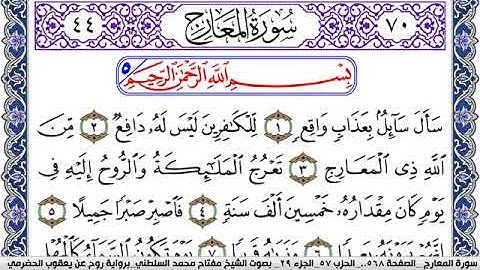 ٧٠ سُورَةُ المَعَارِجِ ٤٤
بِسْمِ اللَّهِ الرَّحْمَٰنِ الرَّحِيمِ ٥
سَأَلَ سَآئِلُۢ بِعَذَابٖ وَاقِعٖ ١ لِّلۡكَٰفِرِينَ لَيۡسَ لَهُۥ دَافِعٞ ٢ مِّنَ
ٱللَّهِ ذِي ٱلۡمَعَارِجِ ٣ تَعۡرُجُ ٱلۡمَلَٰٓئِكَةُ وَٱلرُّوحُ إِلَيۡهِ فِي
يَوۡمٖ كَانَ مِقۡدَارُهُۥ خَمۡسِينَ أَلۡفَ سَنَةٖ ٤ فَٱصۡبِرۡ صَبۡرٗا جَمِيلًا ٥
٦ ٧ يَوۡمَ تَكُونُ ٱلسَّمَآءُ كَٱلۡمُهۡلِ
سورة المعارج_ الصفحة ٥٦٨_ الحزب ٥٧_ الجزء ٢٩_ بصوت الشيخ مفتاح محمد السلطني_ برواية روح عن يعقوب الحضرمي